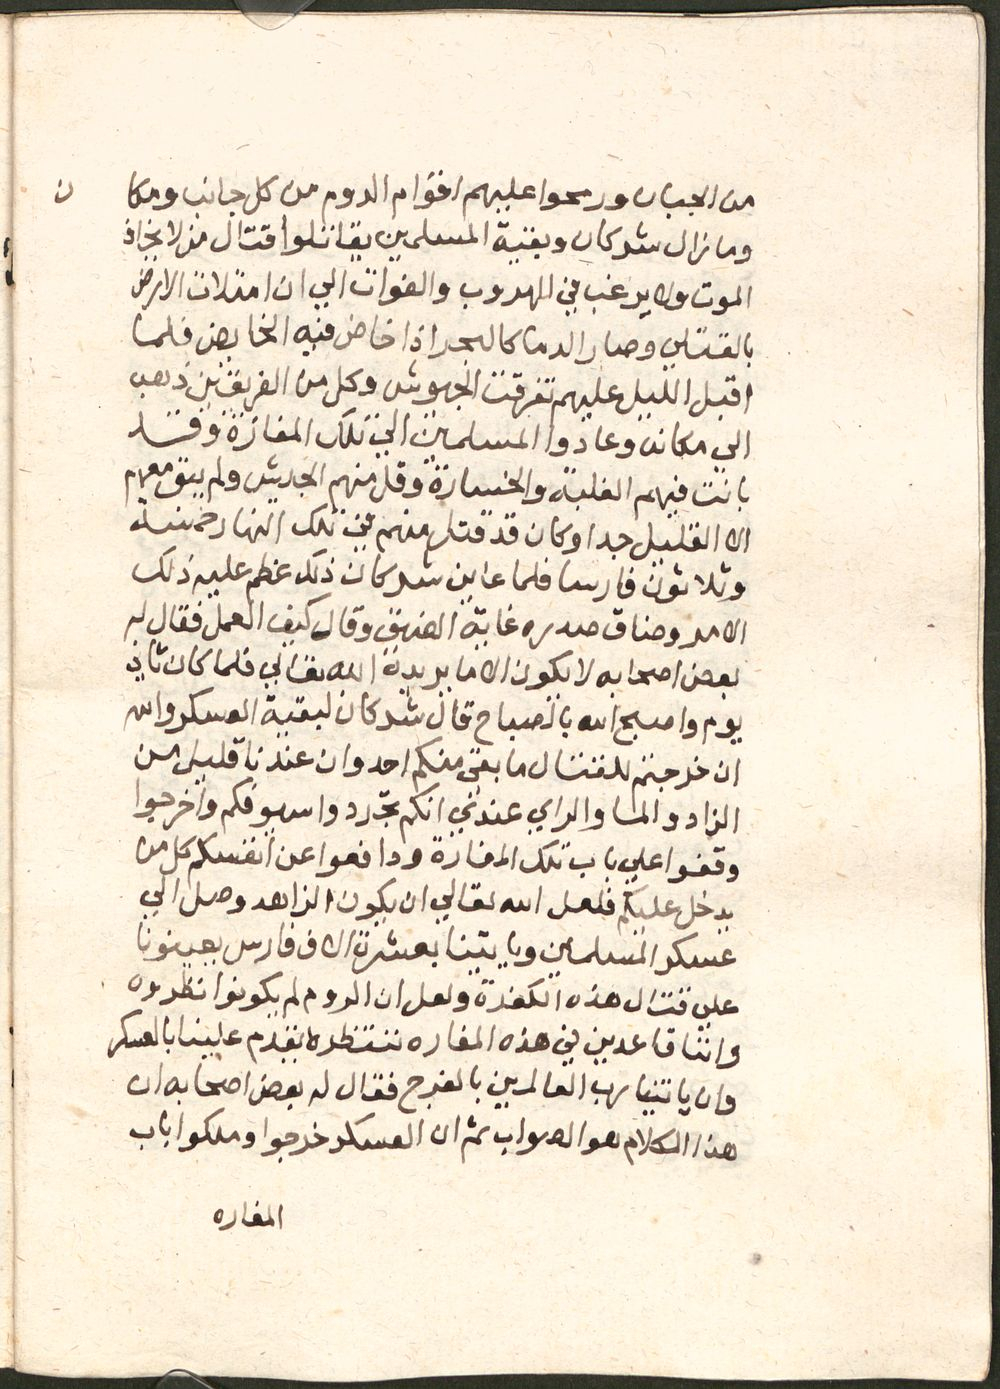 من الجبال ورمحوا عليهم اقوام الروم من كل جانب ومكا ن
وما زال شركان وبقية المسلمين يقاتلوا قتال من لا يخاف
الموت ولا يرغب في الهروب والفوات الي ان امتلات الارض
بالقتلي وصار الدما كالبحر اذا خاض فيه الخايض فلما
اقبل الليل عليهم تفرقت الجيوش وكل من الفريقين ذهب
الي مكانه وعادوا المسلمين الي تلك المغازة وقد
بانت فيهم الغلبة والخسارة وقل منهم الجريش ولم يبق معهم
الا القليل جدا وكان قد قتل منهم في تلك النهار خمسة
وثلاثون فارسا فلما عاين شركان ذلك عظم عليه ذلك
الامر وضاق صدره غاية الضيق وقال كيف العمل فقال له
بعض اصحابه لا يكون الا ما يريده الله تعالي فلما كان ثاني
يوم واصبح الله بالصباح قال شركان لبقية العسكر والله
ان خرجتم للقتال ما بقي منكم احد وان عندنا قليل من
الزاد والما والراي عندي انكم تجردوا سيوفكم واخرجوا
وقفوا علي باب تلك المغازة ودافعوا عن انفسكم كل من
يدخل عليكم فلعل الله تعالي ان يكون الزاهد وصل الي
عسكر المسلمين وياتينا بعشرة الاف فارس يعينونا
علي قتال هذه الكفرة ولعل ان الروم لم يكونوا نظروه
واننا قاعدين في هذه المغاره ننتظره يقدم علينا بالعسكر
وان ياتينا رب العالمين بالفرج فقال له بعض اصحابه ان
هذا الكلام هو الصواب ثم ان العسكر خرجوا وملكوا باب
المغاره